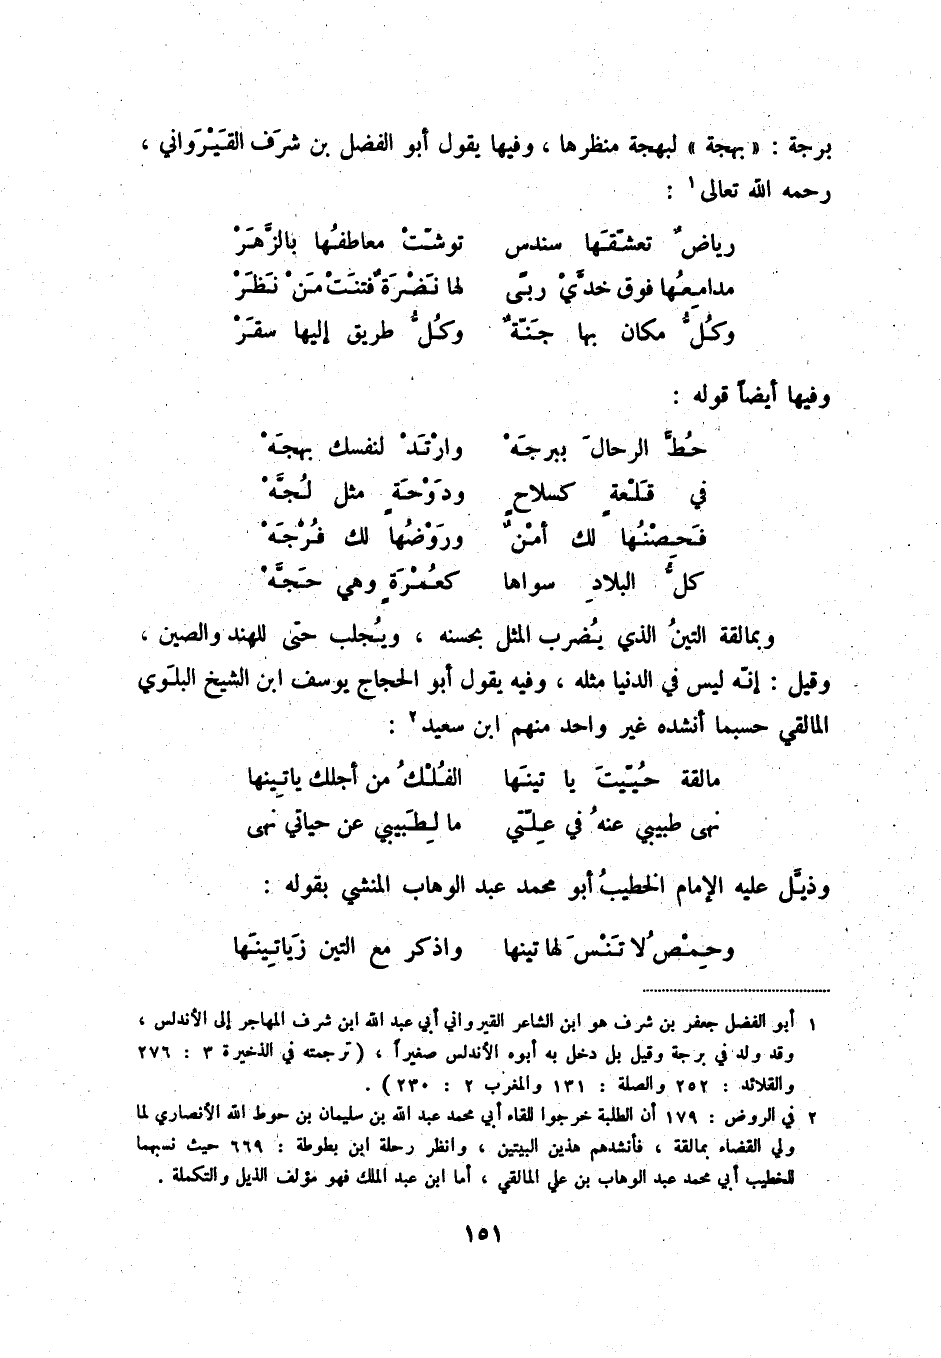 برجة : « بهجة » لبهجة منظرها ، وفيها يقول أبو الفضل بن شرَف القَيْرَواني ،
رحمه الله تعالى١ :
رياضٌ تعشّقَها سندس توشّتْ معاطفُها بالزَّهَرْ
مدامعُها فوق خدَّيْ ربّى لها نَضْرَةٌ فتنَتْ مَنْ نَظَرْ
وكُلُّ مكان بها جَنّةٌ وكُلُّ طريق إليها سقَرْ
وفيها أيضاً قوله :
حُطَّ الرحالَ ببرجَهْ وارْتَدْ لنفسك بهجَهْ
في قَلْعةٍ كسلاحٍ ودَوْحَةٍ مثل لُجَّهْ
فَحِصْنُها لك أمْنٌ ورَوْضُها لك فُرْجَهْ
كلُّ البلادِ سواها كعُمْرَةٍ وهي حَجَّهْ
وبمالقة التينُ الذي يُضرب المثل بحسنه ، ويُجلب حتّى للهند والصين ،
وقيل : إنّه ليس في الدنيا مثله ، وفيه يقول أبو الحجاج يوسف ابن الشيخ البلَوي
المالقي حسبما أنشده غير واحد منهم ابن سعيد٢ :
مالقة حُيّيتَ يا تينَها الفُلْكُ من أجلك ياتِينها
نهى طبيبي عنهُ في عِلّتي ما لِطَبيبي عن حياتي نهى
وذيَّل عليه الإمام الخطيبُ أبو محمد عبد الوهاب المنشي بقوله :
وحِمْصُ لا تَنْسَ لها تينها واذكر مع التين زَياتِينَها
١ أبو الفضل جعفر بن شرف هو ابن الشاعر القيرواني أبي عبد الله ابن شرف المهاجر إلى الأندلس ،
وقد ولد في برجة وقيل بل دخل به أبوه الأندلس صغيراً ، ( ترجمته في الذخيرة ٣ : ٢٧٦
والقلائد : ٢٥٢ والصلة : ١٣١ والمغرب ٢ : ٢٣٠ ) .
٢ في الروض : ١٧٩ أن الطلبة خرجوا للقاء أبي محمد عبد الله بن سليمان بن حوط الله الأنصاري لما
ولي القضاء بمالقة ، فأنشدهم هذين البيتين ، وانظر رحلة ابن بطوطة : ٦٦٩ حيث نسبهما
للخطيب أبي محمد عبد الوهاب بن علي المالقي ، أما ابن عبد الملك فهو مؤلف الذيل والتكملة .
١٥١